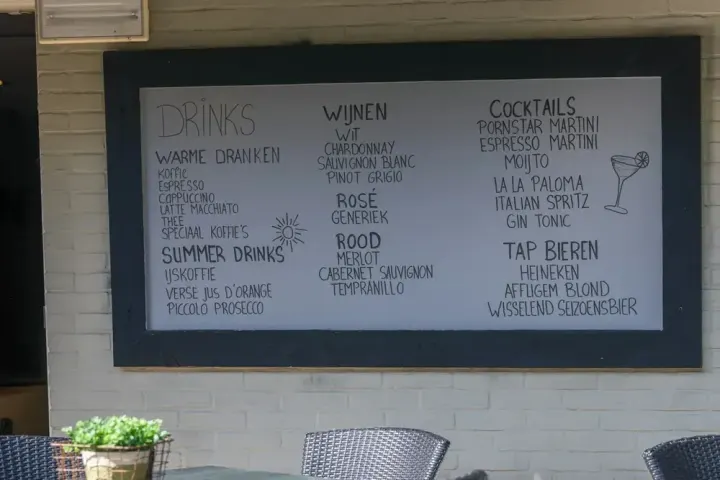 DRINKS
WARME DRANKEN
KOFFIE
ESPRESSO
CAPPUCCINO
LATTE MACCHIATO
THEE
SPECIAAL KOFFIE'S
SUMMER DRINKS
IJSKOFFIE
VERSE JUS D'ORANGE
PICCOLO PROSECCO
WIJNEN
WIT
CHARDONNAY
SAUVIGNON BLANC
PINOT GRIGIO
ROSÉ
GENERIEK
ROOD
MERLOT
CABERNET SAUVIGNON
TEMPRANILLO
COCKTAILS
PORNSTAR MARTINI
ESPRESSO MARTINI
MOIJTO
LA LA PALOMA
ITALIAN SPRITZ
GIN TONIC
TAP BIEREN
HEINEKEN
AFFLIGEM BLOND
WISSELEND SEIZOENSBIER